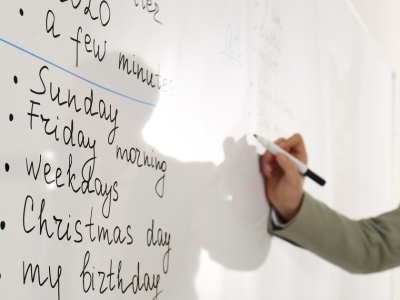 2020
• a few minutes
• Sunday
• Friday morning
• weekdays
• Christmas day
• my birthday